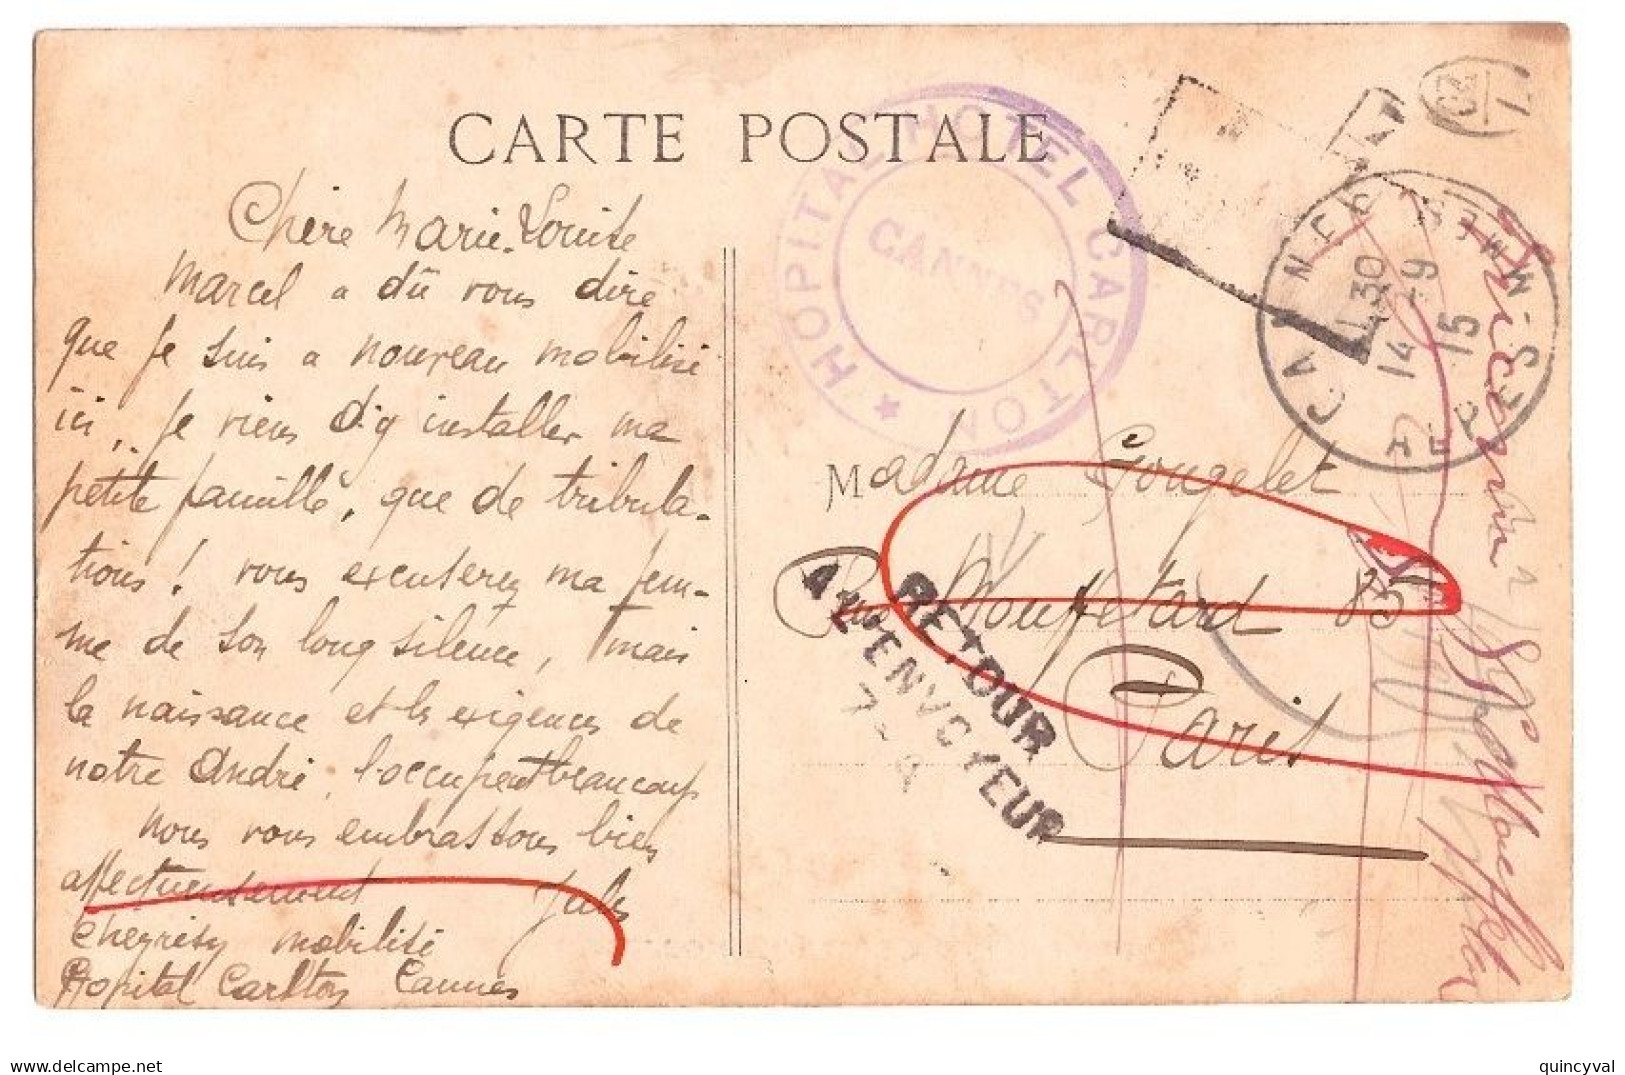 CARTE POSTALE
Chère Marie-Louise
Marcel a dû vous dire
que je suis a nouveau mobilisé
ici, je viens d'y installer ma
petite famille, que de tribula-
tions! vous excuserez ma fem-
me de son long silence, mais
la naissance et les exigences de
notre André l'occupent beaucoup
nous vous embrassons bien
affectueusement Jules
Cheyrésy mobilisé
Hopital Carlton Cannes
HOPITAL HOTEL CARLTON
CANNES
CANNES
ALP MMES
11 30
14 - 9
15
Madame Gougelet
Rue Mouffetard 85
Paris
RETOUR
A L'ENVOYEUR
Inconnu
85
www.delcampe.net
quincyval